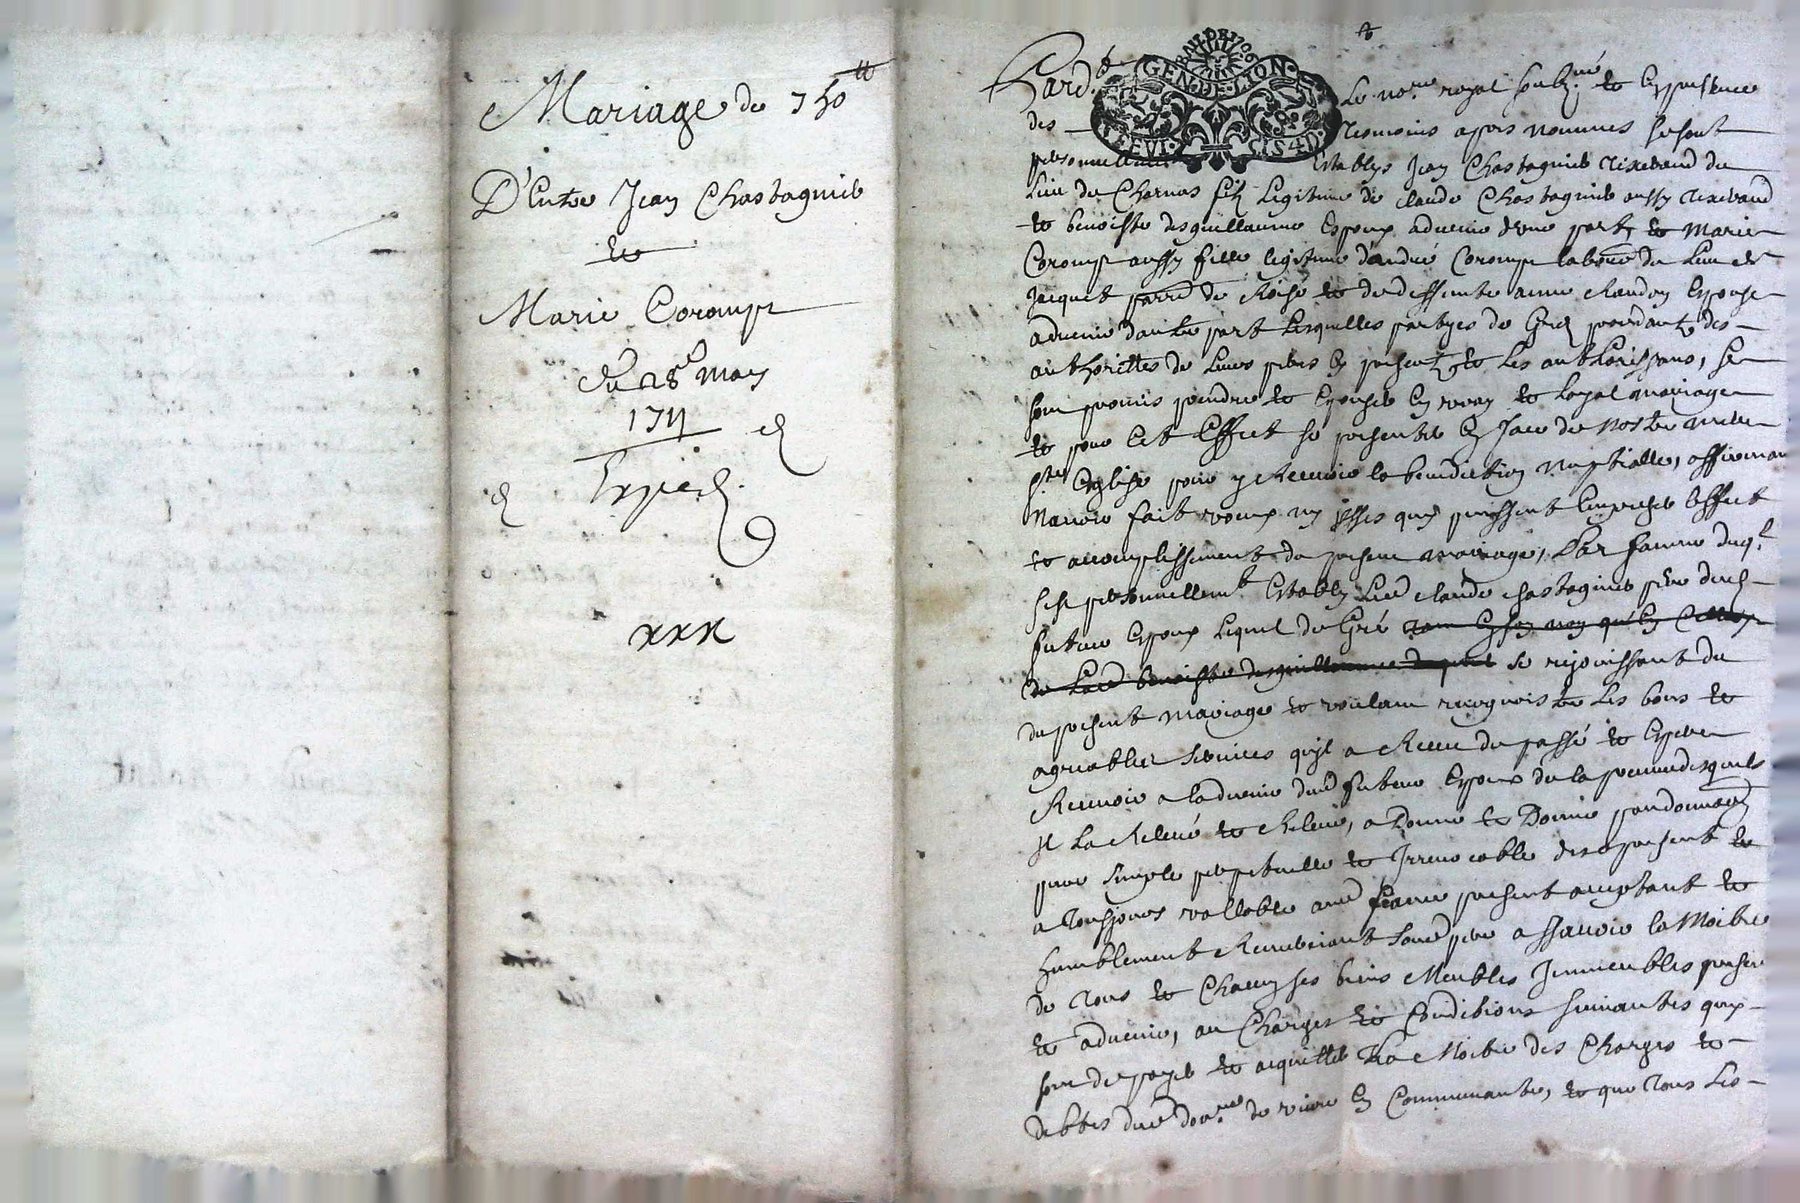 Mariage de 750ᵗᵗ
D'Entre Jean Chastagnier
et
Marie Coromp
du 28ᵉ May
1711
Exped.
xxx
Pard.ᵗ
BAUX DE 1706
GEN. DE LION
Le no.ʳᵉ royal soubz.ⁿᵉ et En presence
des tesmoins apres nommes se sont
personnellemᵗ Establys Jean Chastagnier tixerand du
lieu de Charnas fils Legitime de Claude Chastagnier aussy tixerand
et benoiste desguillaume Espoux advenir d'une part, et Marie
Coromp aussy fille legitime d'andré Coromp labour du Lieu de
Jacquet parre de et de deffunte anne Chandon Espouse
advenir d'autre part Lesquelles partyes de Gré proceddant des
authorittes de Leurs peres Cy presentz et Les authorissans, se
sont promis prendre et Epouser En vray et Loyal mariage
et pour Cet Effect se presenter En face de Nostre mere
ste Eglise pour y Recevoir la benediction Nuptialle, affirmant
N'avoir fait voeux ny psses quy puissent Empescher l'Effect
et accomplissement du present mariage, En faveur duq.ˡ
s'est personnellemᵗ Estably Led Claude Chastagnier pere dud
futeur Espoux Lequel de Gré
se rejouissant du
du present Mariage et voulant recognoistre Les bons et
agreables services qu'il a Receu du passé et Espere
Recevoir a l'advenir dud futeur Espoux de la preuve desquels
Il La Relevé et Releve, a Donné et Donne par donnaon
pure simple perpetuelle et Irrevocable des a present et
a Tousjours vallable aud present acceptant et
humblement Remerciant Sond pere a sçavoir la Moitié
de Tous et Chacuns ses biens Meubles Immeubles presens
et advenir, aux Charges et Conditions suivantes quy
sont de payer et acquitter La Moitié des Charges et
debtes dud don.ᵉᵘʳ de vivre En Communauté, et que Tous Les